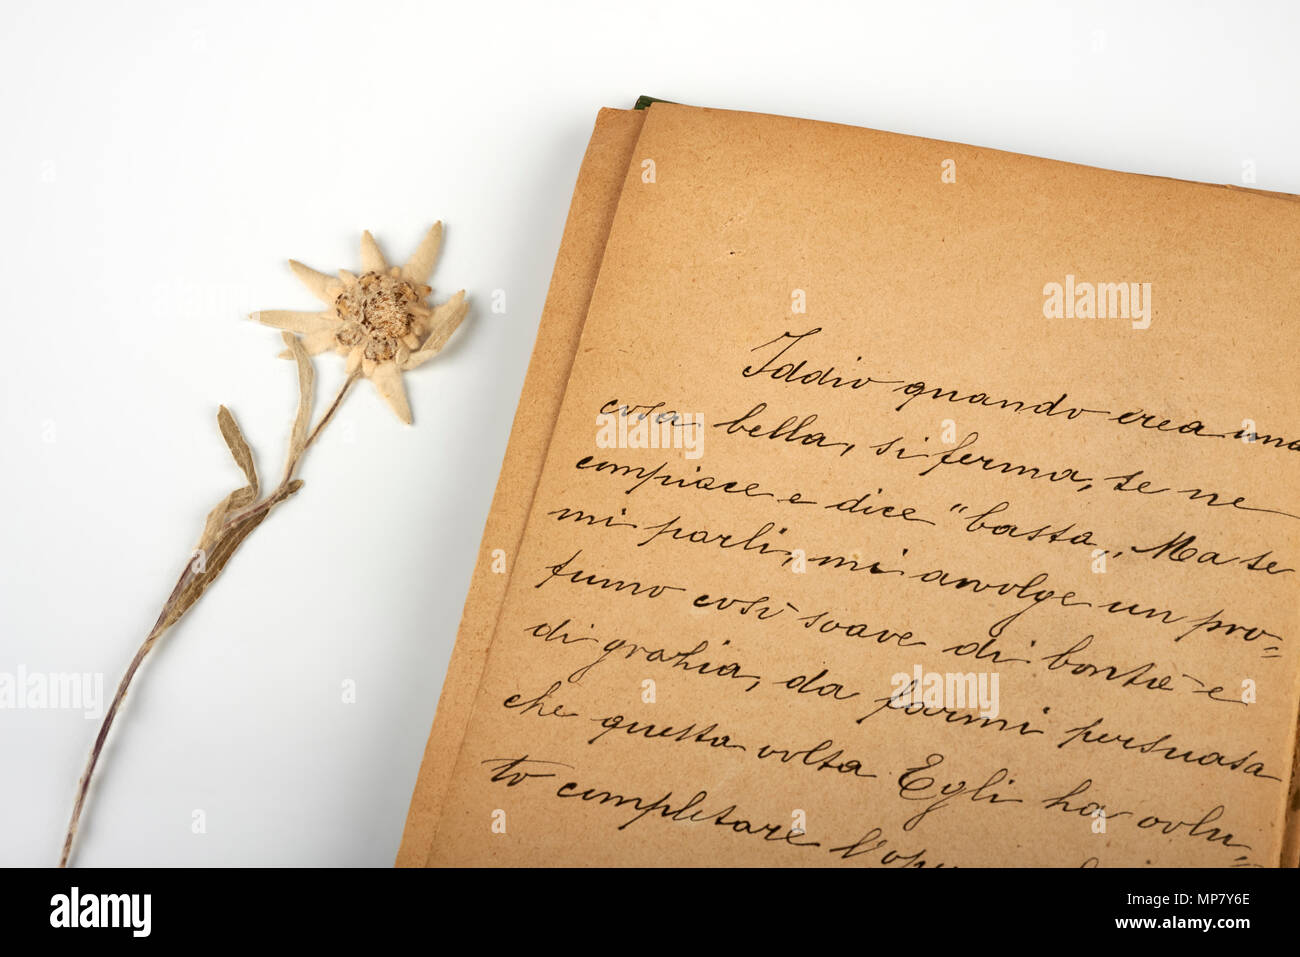 Iddio quando crea una
cosa bella, si ferma, se ne
compiace e dice "basta„. Ma se
mi parli, mi avvolge un pro=
fumo così soave di bontà e
di grazia, da farmi persuasa
che questa volta Egli ha volu=
to completare
alamy
Image ID: MP7Y6E
www.alamy.com